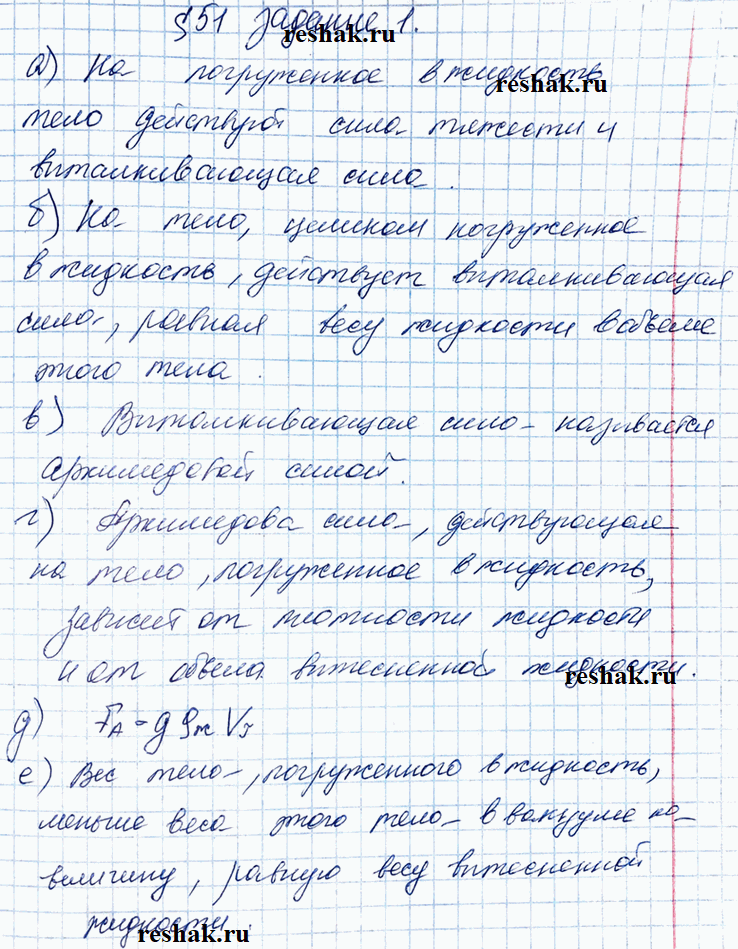 §51 Задание 1.
reshak.ru
а) На погруженное в жидкость
reshak.ru
тело действуют сила тяжести и
выталкивающая сила.
б) На тело, целиком погруженное
в жидкость, действует выталкивающая
сила, равная весу жидкости в объеме
этого тела.
в) Выталкивающая сила называется
архимедовой силой.
г) Архимедова сила, действующая
на тело, погруженное в жидкость,
зависит от плотности жидкости
и от объема вытесненной жидкости.
reshak.ru
д) FА = g ρж Vт
е) Вес тела, погруженного в жидкость,
меньше веса этого тела в вакууме на
величину, равную весу вытесненной
жидкости.
reshak.ru